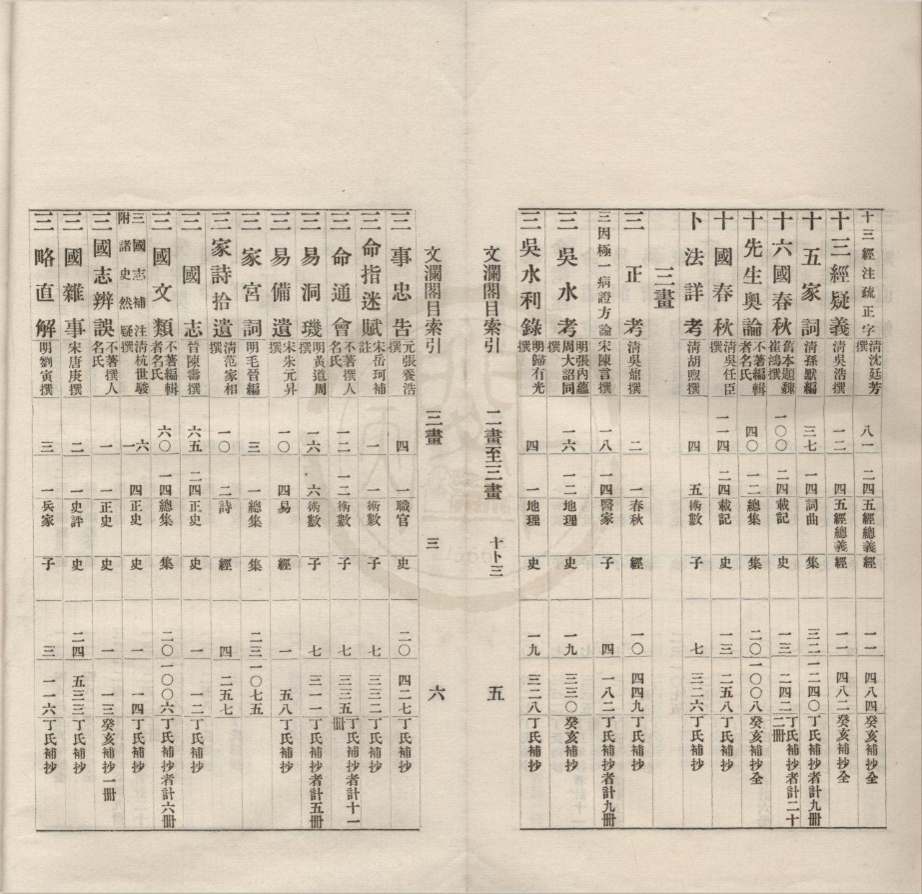 十三經注疏正字 清沈廷芳撰 八一 二四 五經總義 經 一一 四八四 癸亥補抄全
十三經疑義 清吳浩撰 一二 四 五經總義 經 一一 四八二 癸亥補抄全
十五家詞 清孫默編 三七 一四 詞曲 集 三二 一二四〇 丁氏補抄者計九冊
十六國春秋 舊本題魏崔鴻撰 一〇〇 二四 載記 史 一三 二四二 丁氏補抄者計二十二冊
十先生奧論 不著編輯者名氏 四〇 一二 總集 集 二〇 一〇〇八 癸亥補抄全
十國春秋 清吳任臣撰 一一四 二四 載記 史 一三 二五八 丁氏補抄
卜法詳考 清胡煦撰 四 五 術數 子 七 三二六 丁氏補抄
三畫
三正考 清吳鼐撰 二 一 春秋 經 一〇 四四九 丁氏補抄
三因極一病證方論 宋陳言撰 一八 一四 醫家 子 四 一八二 丁氏補抄者計九冊
三吳水考 明張內蘊周大韶同撰 一六 一二 地理 史 一九 三三〇 癸亥補抄
三吳水利錄 明歸有光撰 四 一 地理 史 一九 三二八 丁氏補抄
文瀾閣目索引 二畫至三畫 十卜三 五
文瀾閣目索引 三畫 三 六
三事忠告 元張養浩撰 四 一 職官 史 二〇 四二七 丁氏補抄
三命指迷賦 宋岳珂補註 一 一 術數 子 七 三三二 丁氏補抄
三命通會 不著撰人名氏 一二 一二 術數 子 七 三三五 丁氏補抄者計十一冊
三易洞璣 明黃道周撰 一六 六 術數 子 七 三一一 丁氏補抄者計五冊
三易備遺 宋朱元昇撰 一〇 四 易 經 一 五八 丁氏補抄
三家宮詞 明毛晉編 三 一 總集 集 二三 一〇七五
三家詩拾遺 清范家相撰 一〇 二 詩 經 四 二五七
三國志 晉陳壽撰 六五 二四 正史 史 一 一二 丁氏補抄
三國文類 不著編輯者名氏 六〇 一四 總集 集 二〇 一〇〇六 丁氏補抄者計六冊
三國志補注附諸史然疑 清杭世駿撰 六一 四 正史 史 一 一四 丁氏補抄
三國志辨誤 不著撰人名氏 一 一 正史 史 一 一三 癸亥補抄一冊
三國雜事 宋唐庚撰 二 一 史評 史 二四 五三三 丁氏補抄
三略直解 明劉寅撰 三 一 兵家 子 三 一一六 丁氏補抄